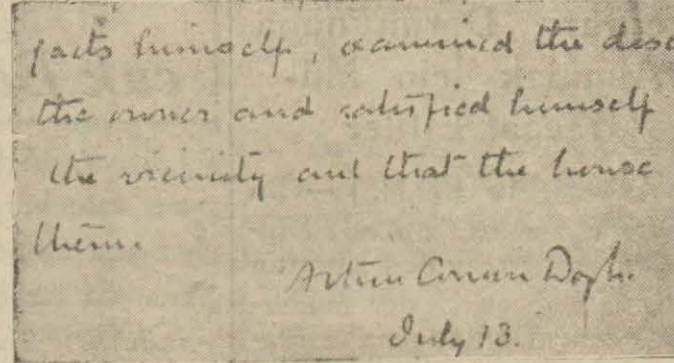 facts himself, examined the desc
the owner and satisfied himself
the vicinity and that the house
them.
Arthur Conan Doyle.
July 13.